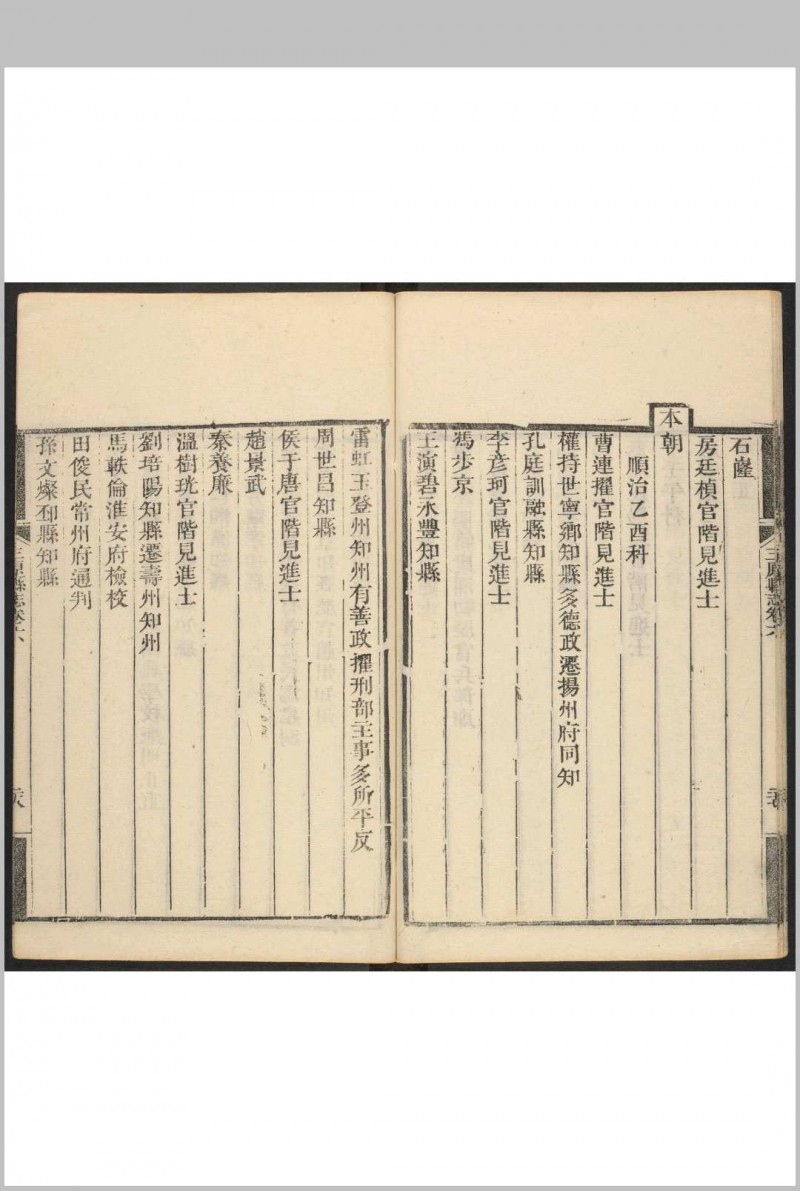 石㠖
房廷楨官階見進士
本朝
順治乙酉科
曹連擢官階見進士
權持世寧鄉知縣多德政遷揚州府同知
孔庭訓融縣知縣
李彦珂官階見進士
馮步京
王演碧永豐知縣
雷虹玉登州知州有善政擢刑部主事多所平反
周世昌知縣
侯于唐官階見進士
趙景武
秦養廉
溫樹珖官階見進士
劉培陽知縣遷壽州知州
馬軼倫淮安府檢校
田俊民常州府通判
孫文燦邳縣知縣
三原縣志卷六